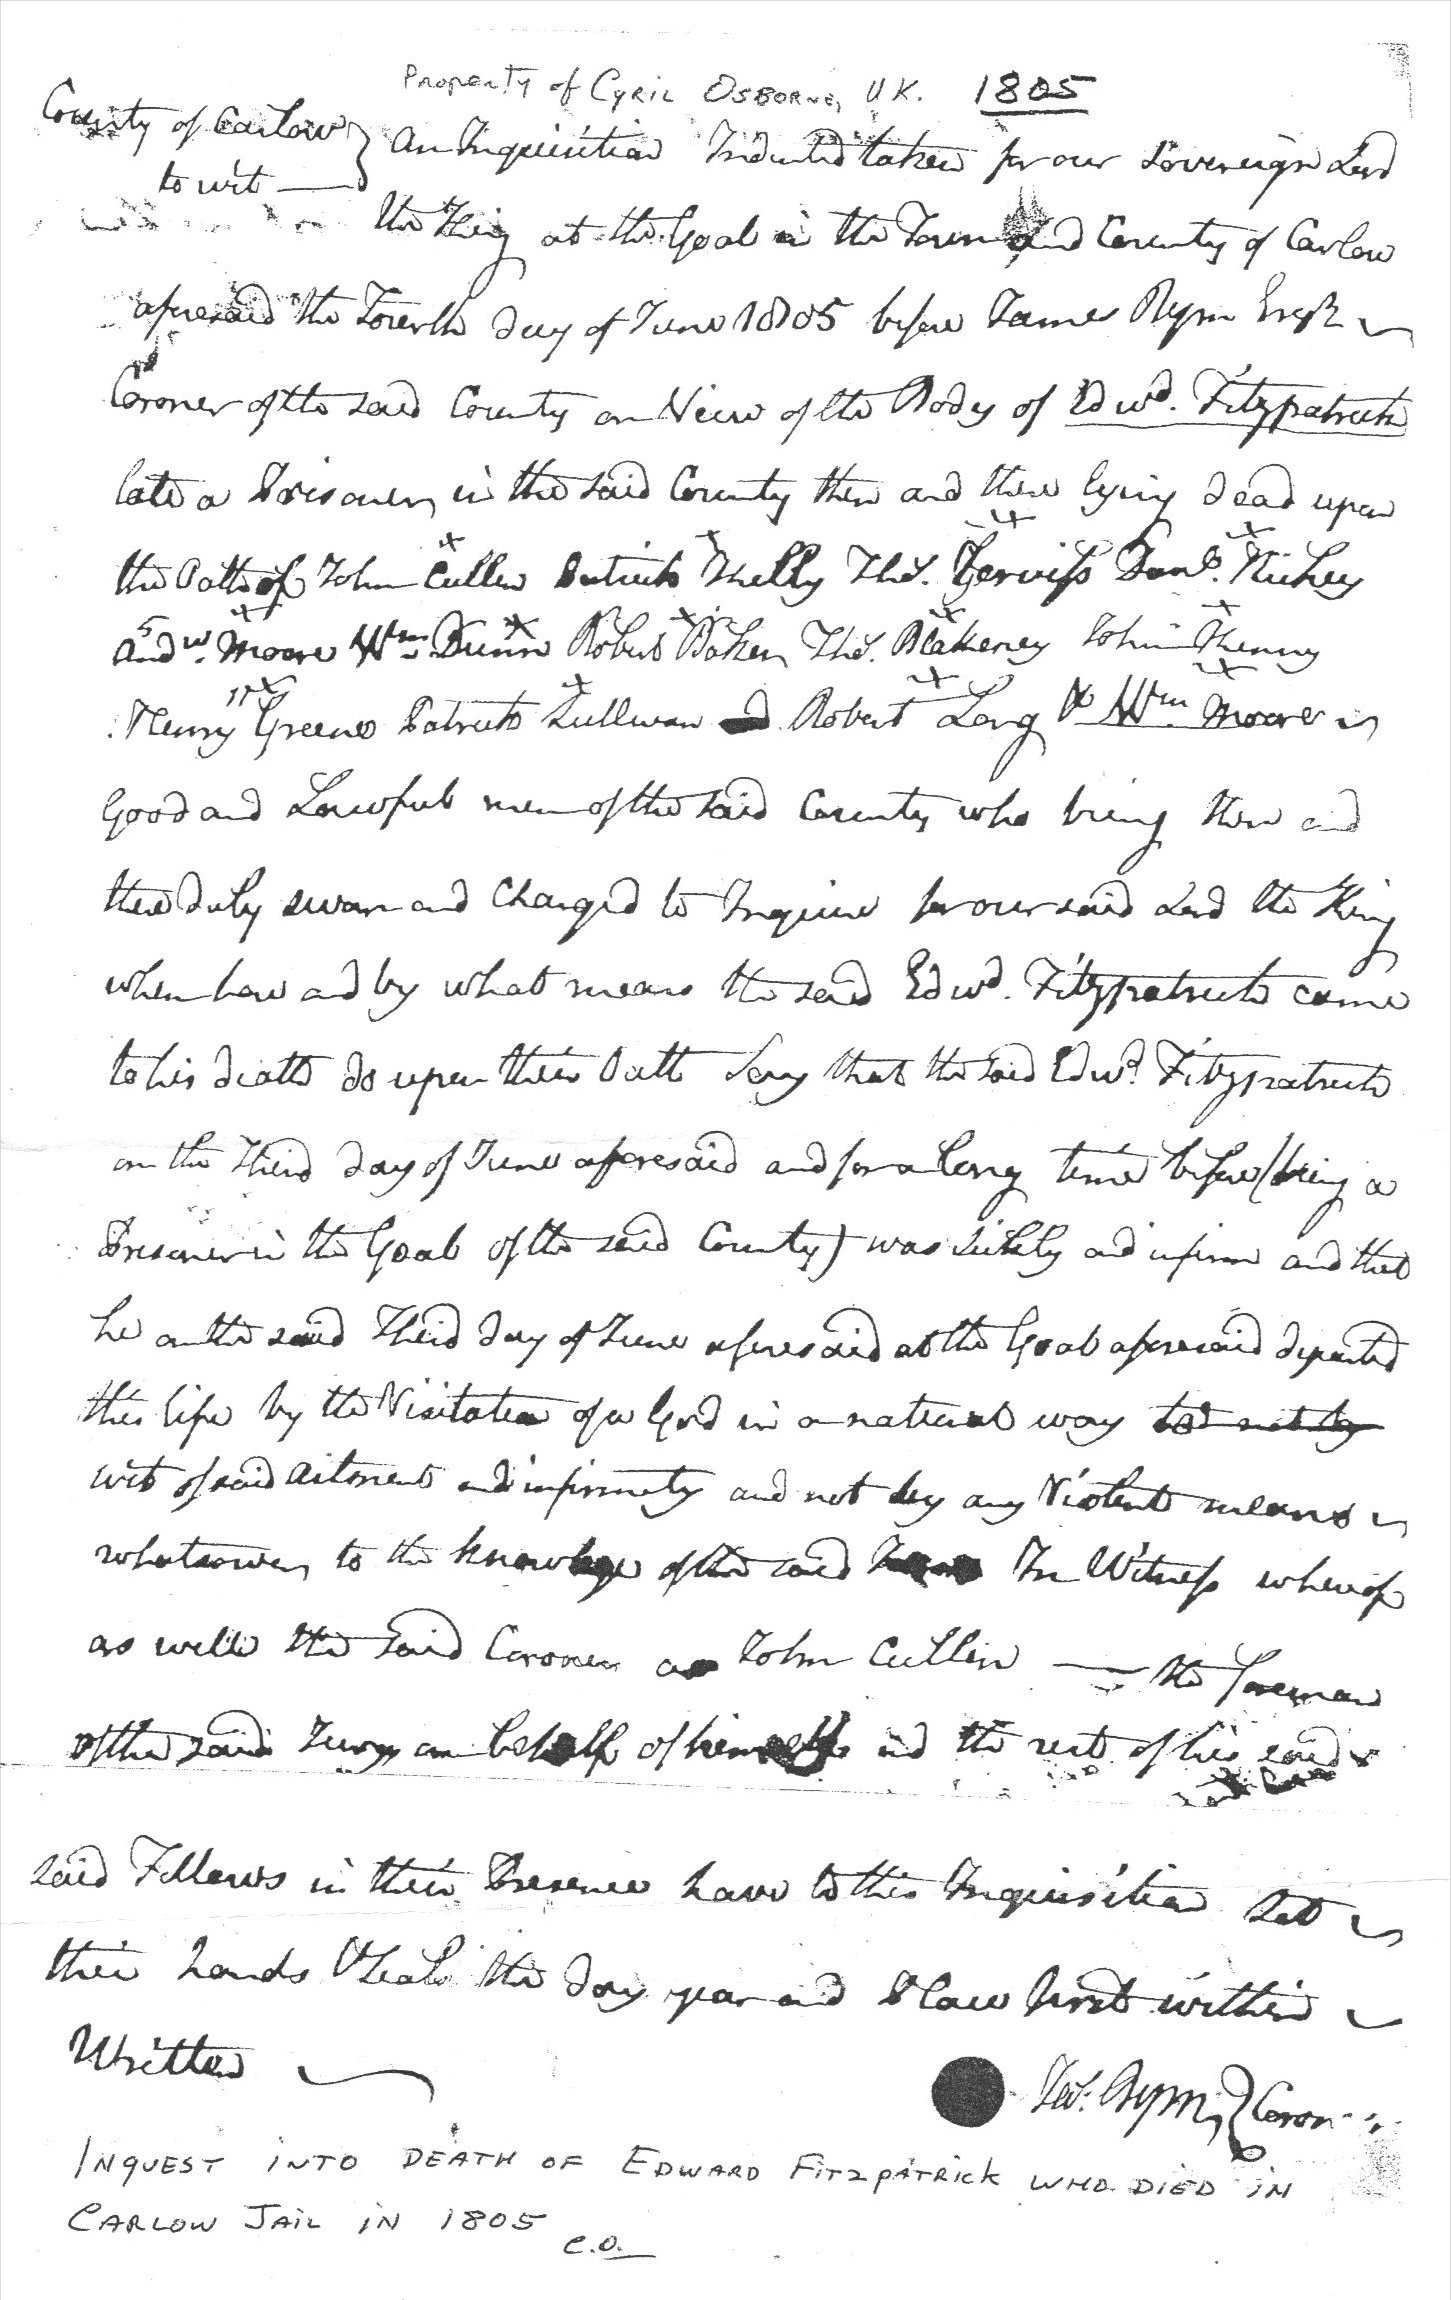 Property of Cyril Osborne, U.K. 1805
County of Carlow } An Inquisition Indented taken for our Sovereign Lord
to wit —
the King at the Goal in the Town and County of Carlow
aforesaid the Fourth day of June 1805 before James Rym Esqr
Coroner of the said County on View of the Body of Edwd. Fitzpatrick
late a Prisoner in the said County then and there lying dead upon
the Oath of John Cullen Patrick Kelly Thos. Jerviss Danl. Hickey
Andw. Moore Wm Dunn Robert Baker Thos. Blakeney John
Henry Greene Patrick Sullivan and Robert Long & Wm. Moore
Good and Lawful men of the said County who being then and
there duly sworn and Charged to Inquire for our said Lord the King
when how and by what means the said Edwd. Fitzpatrick came
to his death do upon their Oath Say that the said Edwd. Fitzpatrick
on the Third day of June aforesaid and for a long time before (being a
Prisoner in the Goal of the said County) was sickly and infirm and that
he on the said Third day of June aforesaid at the Goal aforesaid departed
this life by the Visitation of God in a natural way to
wit of said Ailment and infirmity and not by any Violent means
whatsoever to the knowlege of the said In Witness whereof
as well the said Coroner as John Cullen — the foreman
of the said Jury on behalf of himself and the rest of his said
said Fellows in their Presence have to this Inquisition set
their hands & Seals the day year and Place first within
Written
Jas. Rym } Coroner
Inquest into death of Edward Fitzpatrick who died in
Carlow Jail in 1805
C.O.